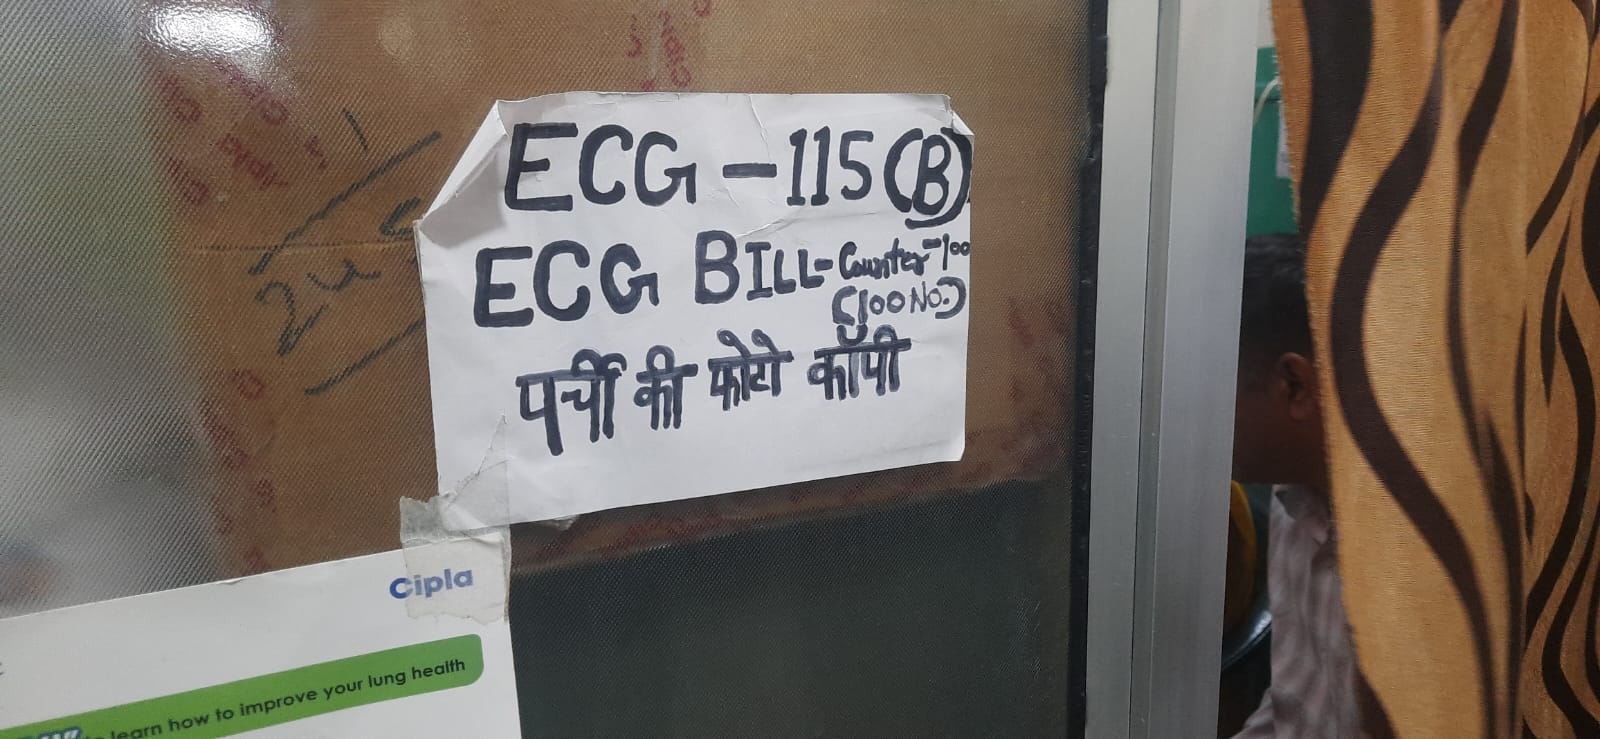 ECG - 115 (B)
ECG BILL - Counter - 100
(100 No.)
पर्ची की फोटो कॉपी
Cipla
learn how to improve your lung health